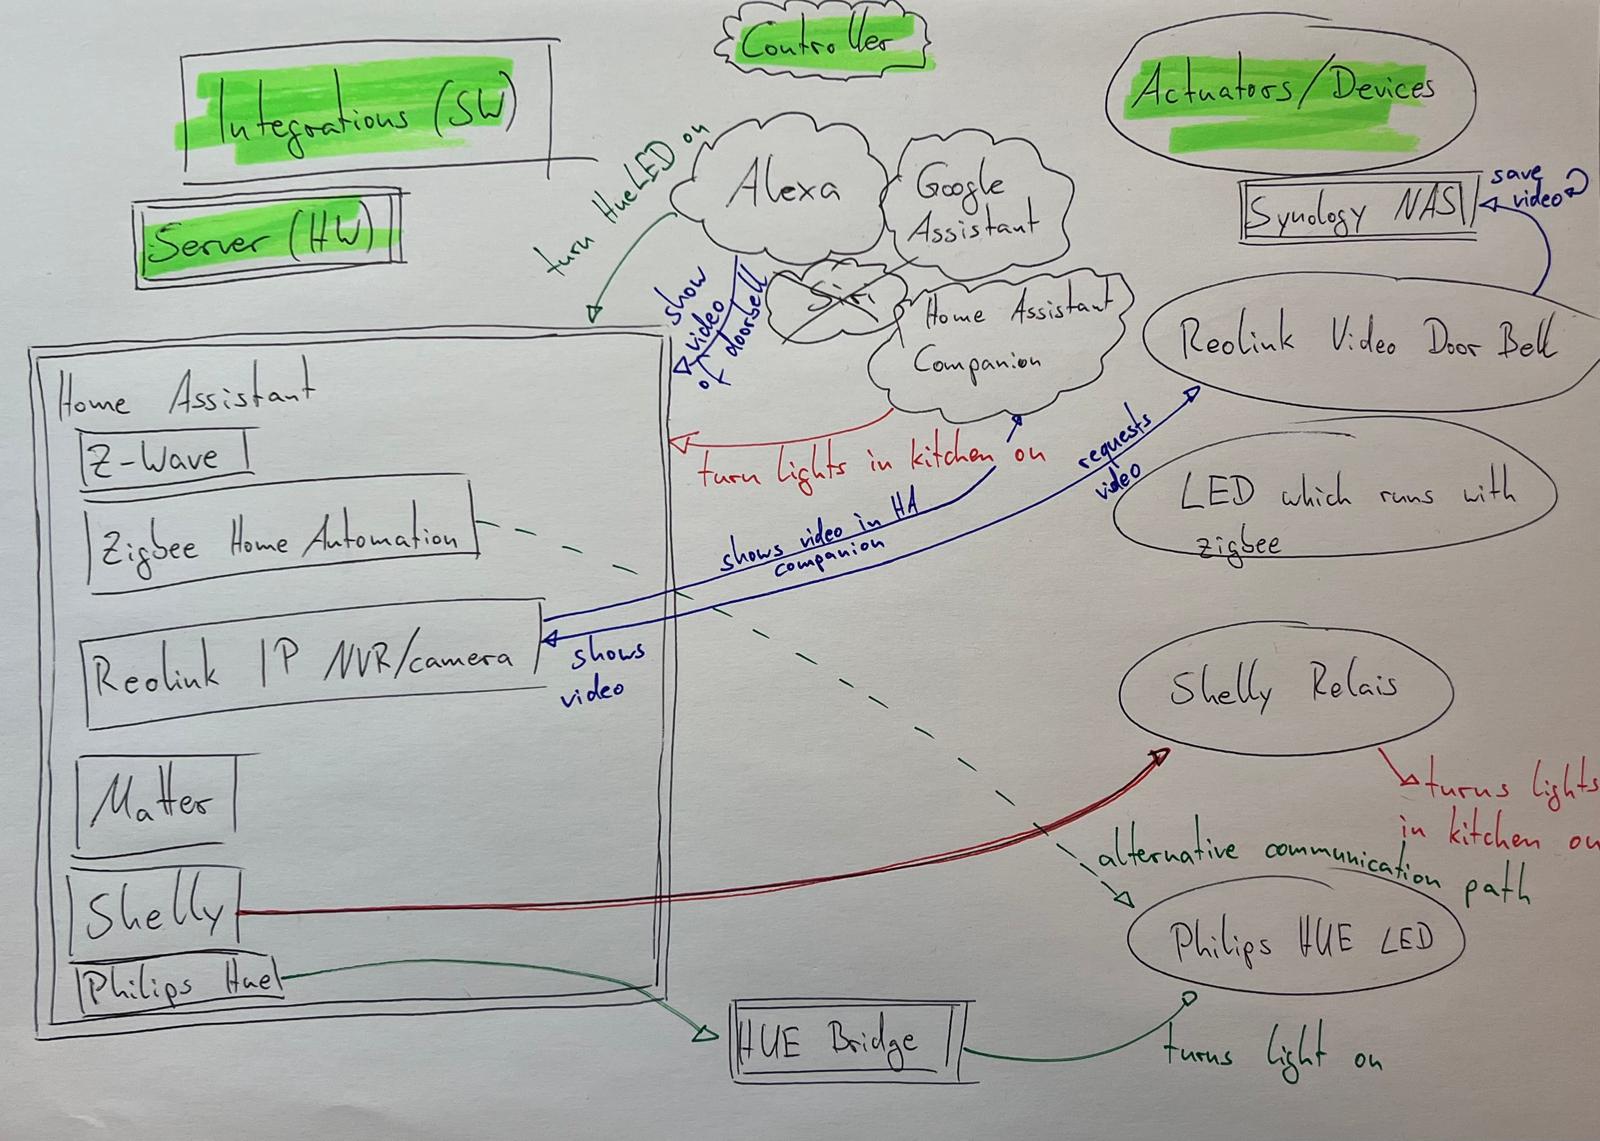 Controller
Integrations (SW)
Actuators/Devices
Server (HW)
turn HueLED on
Alexa
Google
Assistant
Siri
Home Assistant
Companion
show
video
of doorbell
Synology NAS
save
video
Reolink Video Door Bell
Home Assistant
Z-Wave
Zigbee Home Automation
Reolink IP NVR/camera
Matter
Shelly
Philips Hue
turn lights in kitchen on
requests
video
shows video in HA
companion
shows
video
LED which runs with
zigbee
Shelly Relais
turns lights
in kitchen on
alternative communication path
Philips HUE LED
HUE Bridge
turns light on